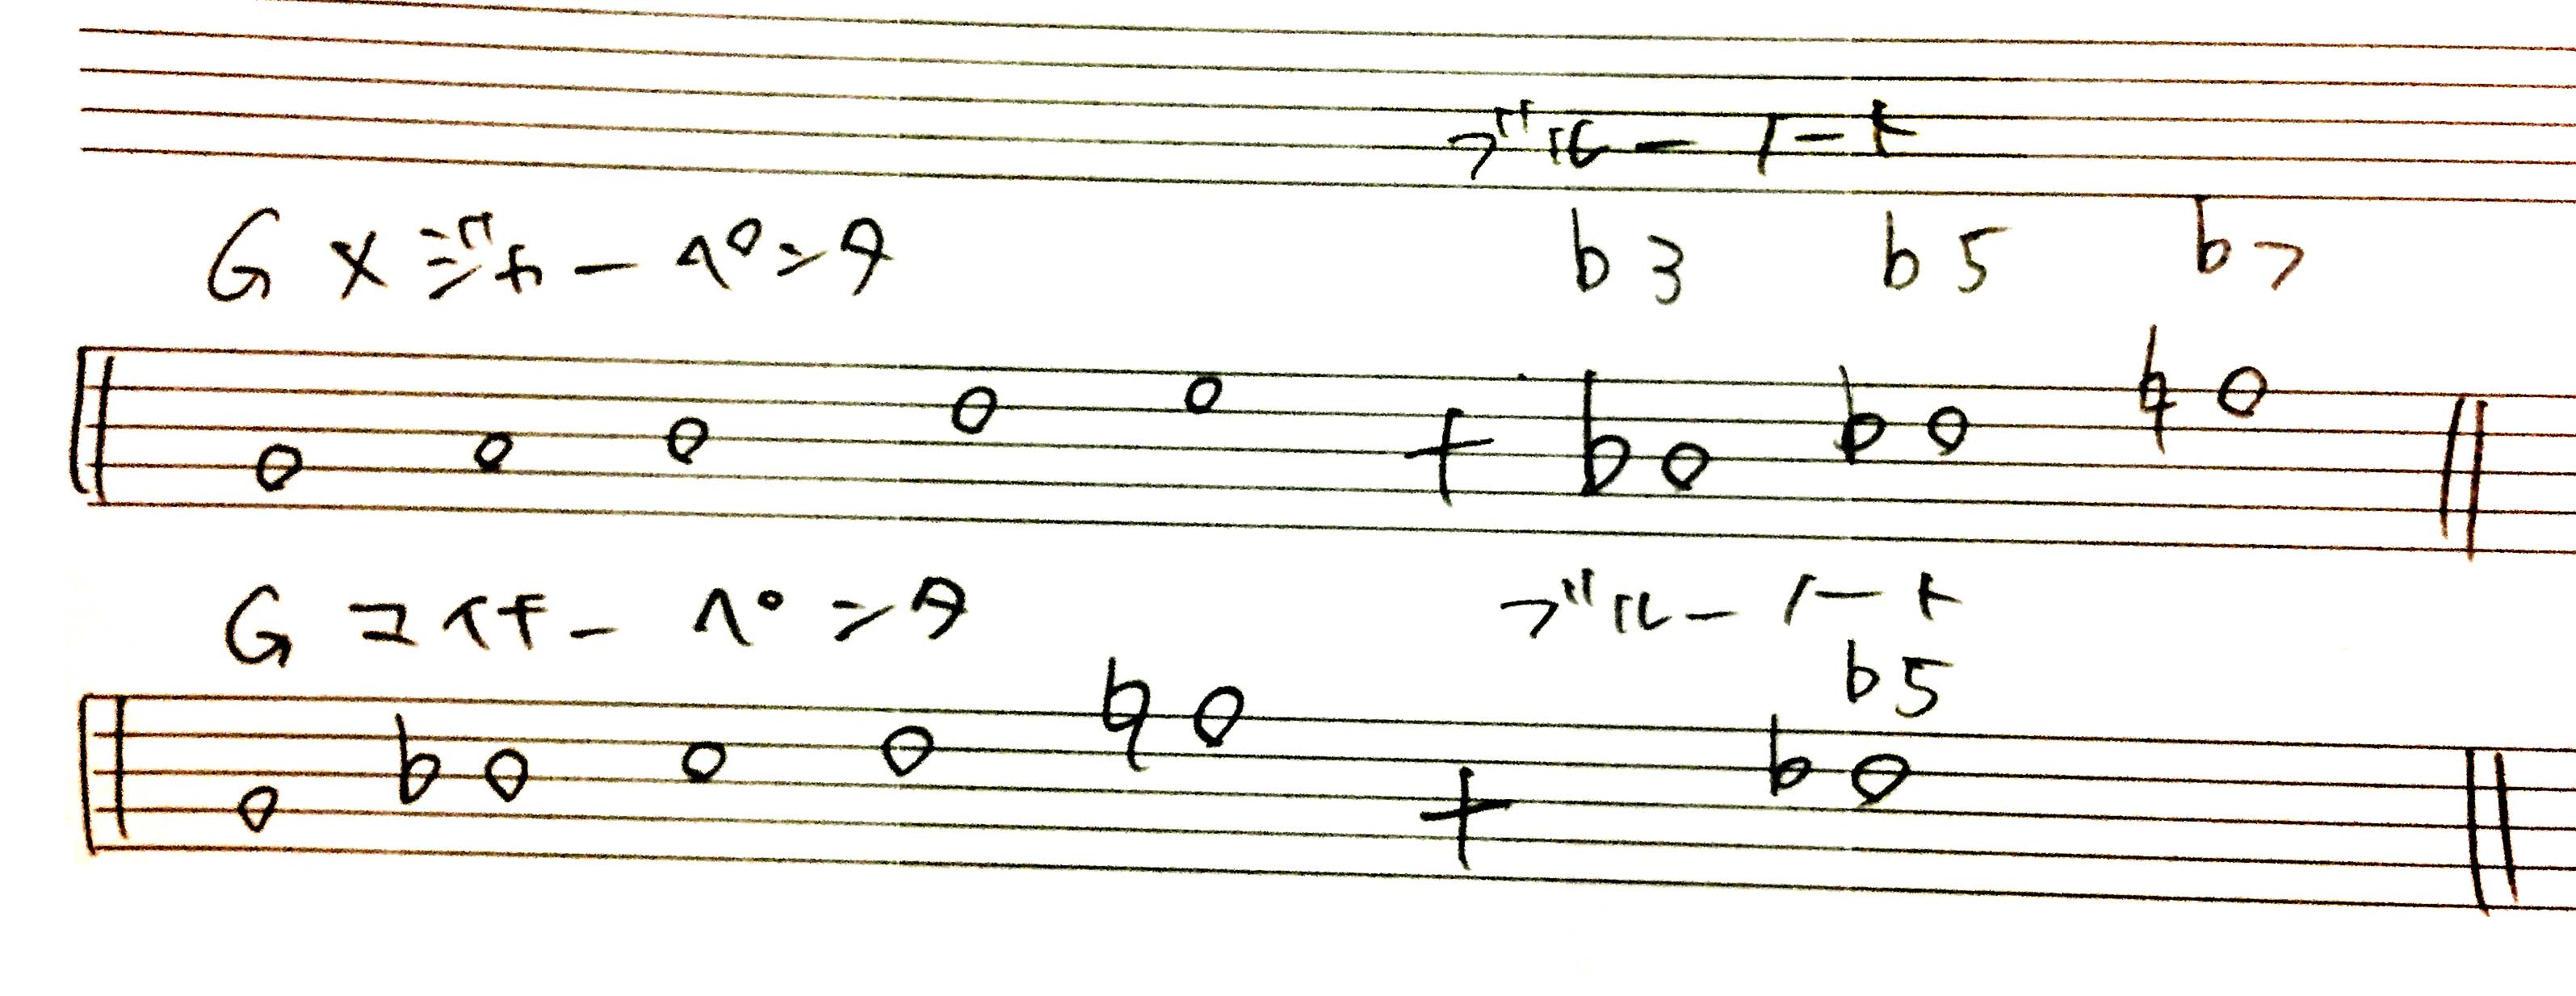 ブルーノート
Gメジャーペンタ b3 b5 b7
+
Gマイナーペンタ ブルーノート
b5
+